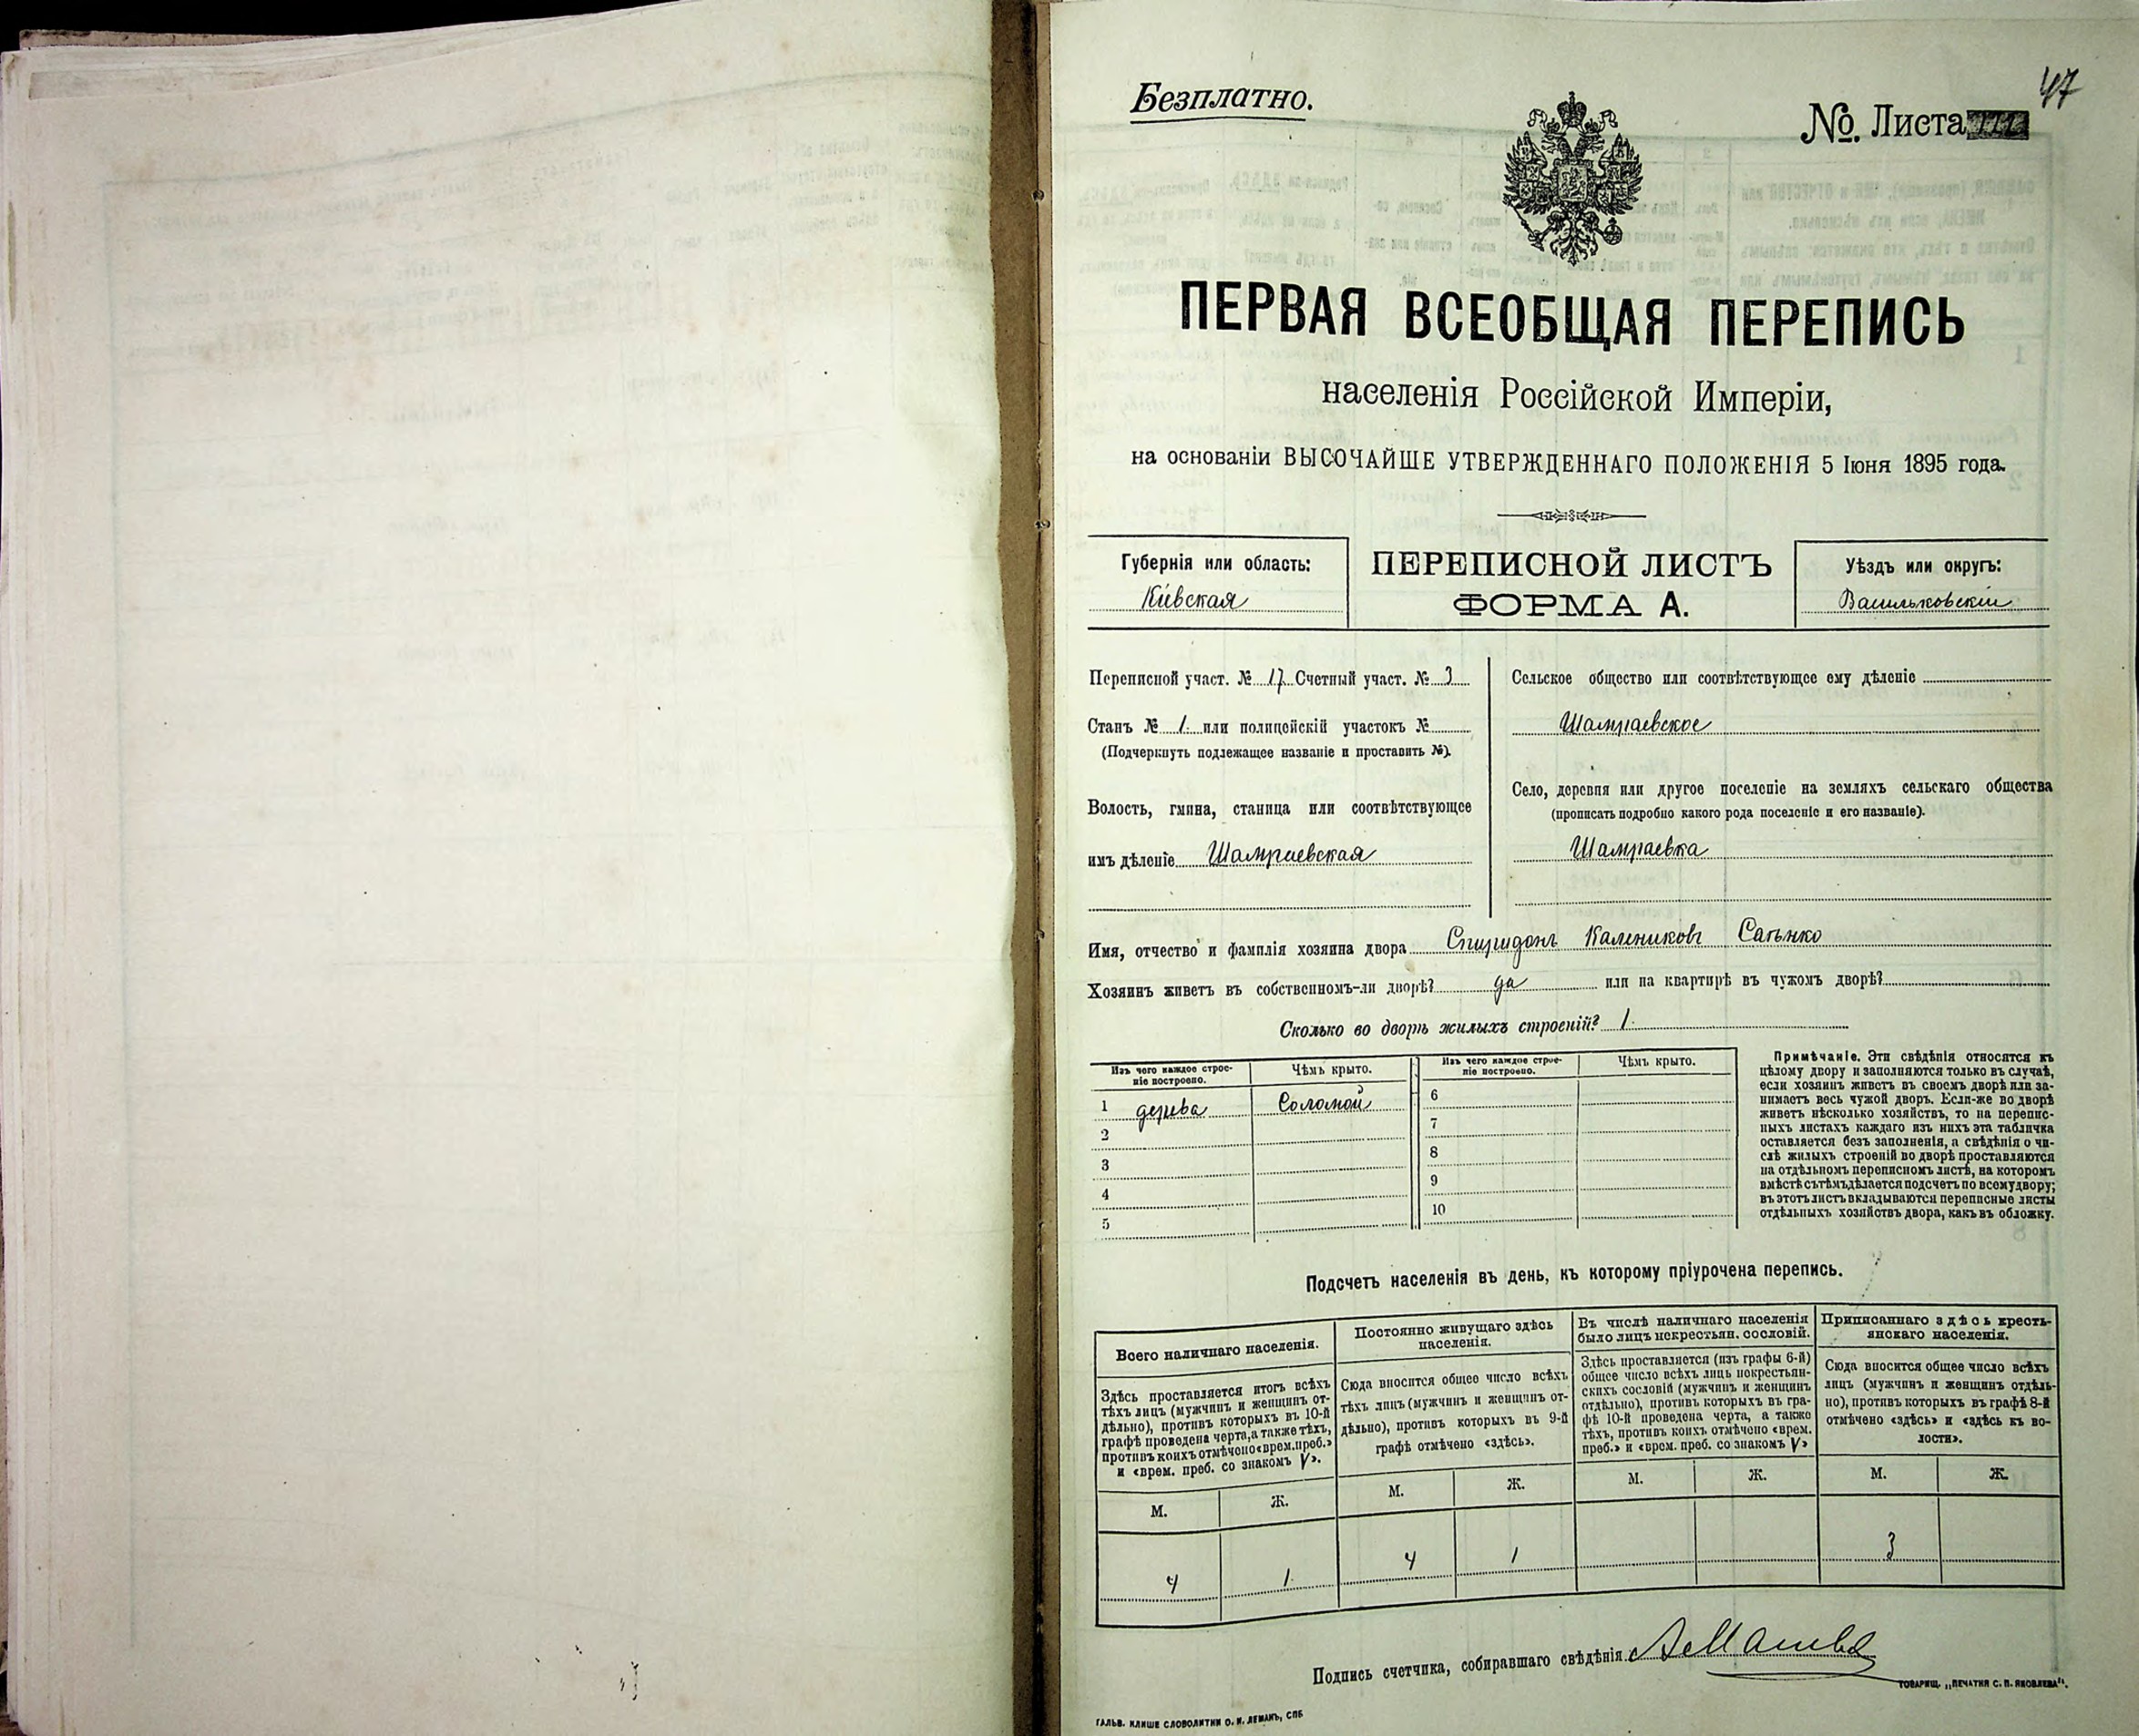 47
Безплатно.
№. Листа
ПЕРВАЯ ВСЕОБЩАЯ ПЕРЕПИСЬ
населенія Россійской Имперіи,
на основаніи ВЫСОЧАЙШЕ УТВЕРЖДЕННАГО ПОЛОЖЕНІЯ 5 Іюня 1895 года.
Губернія или область:
Кіевская
ПЕРЕПИСНОЙ ЛИСТЪ
ФОРМА А.
Уѣздъ или округъ:
Васильковскій
Переписной участ. № 17 Счетный участ. № 3
Станъ № 1. или полицейскій участокъ №
(Подчеркнуть подлежащее названіе и проставить №).
Волость, гмина, станица или соотвѣтствующее
имъ дѣленіе Шамраевская
Сельское общество или соотвѣтствующее ему дѣленіе
Шамраевское
Село, деревня или другое поселеніе на земляхъ сельскаго общества
(прописать подробно какого рода поселеніе и его названіе).
Шамраевка
Имя, отчество и фамилія хозяина двора Спиридонъ Калениковъ
Хозяинъ живетъ въ собственномъ-ли дворѣ? да или на квартирѣ въ чужомъ дворѣ?
Сколько во дворѣ жилыхъ строеній? 1.
Изъ чего каждое строе-
ніе построено.
Чѣмъ крыто.
Изъ чего каждое строе-
ніе построено.
Чѣмъ крыто.
1 дерева Соломой
2
3
4
5
6
7
8
9
10
Примѣчаніе. Эти свѣдѣнія относятся къ
цѣлому двору и заполняются только въ случаѣ,
если хозяинъ живетъ въ своемъ дворѣ или за-
нимаетъ весь чужой дворъ. Если-же во дворѣ
живетъ нѣсколько хозяйствъ, то на перепис-
ныхъ листахъ каждаго изъ нихъ эта табличка
оставляется безъ заполненія, а свѣдѣнія о чи-
слѣ жилыхъ строеній во дворѣ проставляются
на отдѣльномъ переписномъ листѣ, на которомъ
вмѣстѣ съ тѣмъ дѣлается подсчетъ по всему двору;
въ этотъ листъ вкладываются переписные листы
отдѣльныхъ хозяйствъ двора, какъ въ обложку.
Подсчетъ населенія въ день, къ которому пріурочена перепись.
Всего наличнаго населенія.
Здѣсь проставляется итогъ всѣхъ
тѣхъ лицъ (мужчинъ и женщинъ от-
дѣльно), противъ которыхъ въ 10-й
графѣ проведена черта, а также тѣхъ,
противъ коихъ отмѣчено «врем. преб.»
и «врем. преб. со знакомъ V».
М. Ж.
4 1.
Постоянно живущаго здѣсь
населенія.
Сюда вносится общее число всѣхъ
тѣхъ лицъ (мужчинъ и женщинъ от-
дѣльно), противъ которыхъ въ 9-й
графѣ отмѣчено «здѣсь».
М. Ж.
4 1
Въ числѣ наличнаго населенія
было лицъ некрестьян. сословій.
Здѣсь проставляется (изъ графы 6-й)
общее число всѣхъ лицъ некрестьян-
скихъ сословій (мужчинъ и женщинъ
отдѣльно), противъ которыхъ въ гра-
фѣ 10-й проведена черта, а также
тѣхъ, противъ коихъ отмѣчено «врем.
преб.» и «врем. преб. со знакомъ V»
М. Ж.
Приписаннаго здѣсь кресть-
янскаго населенія.
Сюда вносится общее число всѣхъ
лицъ (мужчинъ и женщинъ отдѣль-
но), противъ которыхъ въ графѣ 8-й
отмѣчено «здѣсь» и «здѣсь къ во-
лости».
М. Ж.
3
Подпись счетчика, собиравшаго свѣдѣнія
ТОВАРИЩ. „ПЕЧАТНЯ С. П. ЯКОВЛЕВА".
ГАЛЬВ. КЛИШЕ СЛОВОЛИТНИ О. И. ЛЕМАНЪ, СПБ